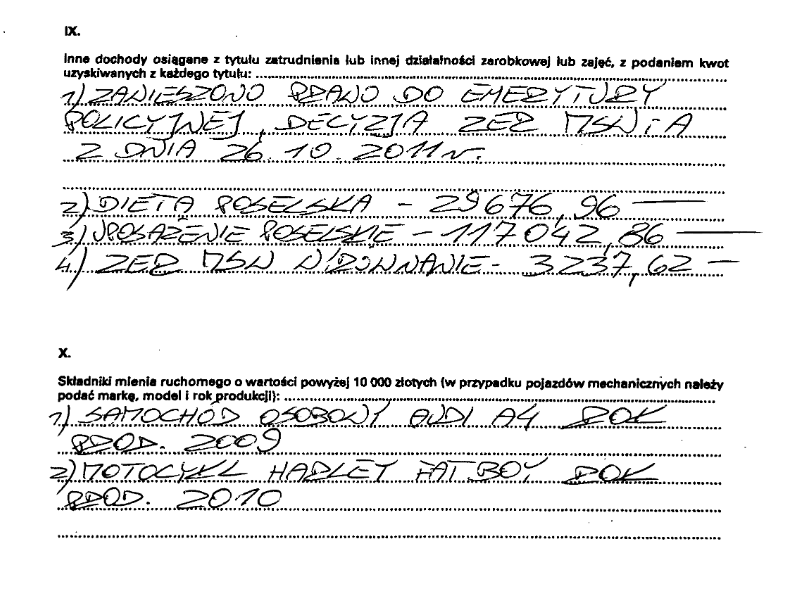 IX.
Inne dochody osiągane z tytułu zatrudnienia lub innej działalności zarobkowej lub zajęć, z podaniem kwot
uzyskiwanych z każdego tytułu:
1) ZAWIESZONO PRAWO DO EMERYTURY
POLICYJNEJ, DECYZJA ZER MSWiA
Z DNIA 26.10.2011r.
2) DIETA POSELSKA - 29676,96
3) UPOSAŻENIE POSELSKIE - 117042,86
4) ZER MSW WYRÓWNANIE - 3237,62
X.
Składniki mienia ruchomego o wartości powyżej 10 000 złotych (w przypadku pojazdów mechanicznych należy
podać markę, model i rok produkcji):
1) SAMOCHÓD OSOBOWY AUDI A4 ROK
PROD. 2009
2) MOTOCYKL HARLEY FAT BOY ROK
PROD. 2010